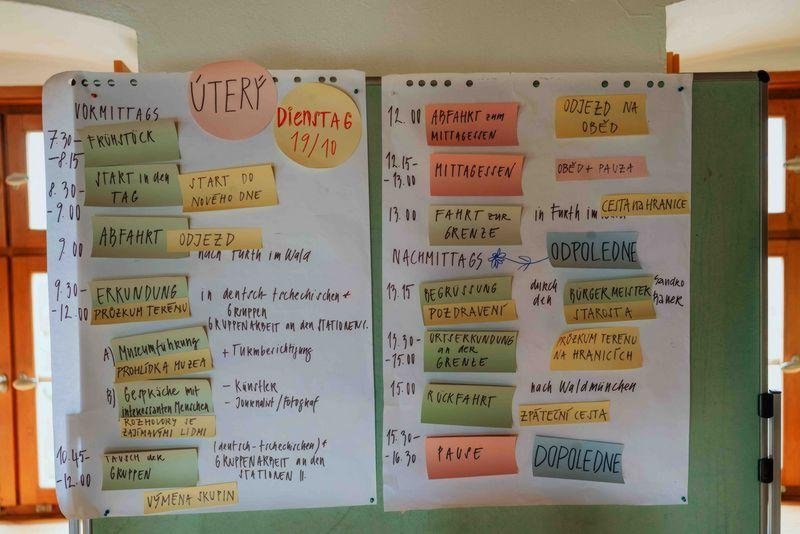 ÚTERÝ
DIENSTAG
19/10
VORMITTAGS
7.30-
-8.15
FRÜHSTÜCK
8.30-
-9.00
START in den
TAG
START DO
NOVÉHO DNE
9.00
ABFAHRT
ODJEZD
nach Furth im Wald
9.30-
-12.00
ERKUNDUNG
PRŮZKUM TERÉNU
in deutsch-tschechischen
GRUPPEN
GRUPPENARBEIT an den STATIONEN I.
A) Museumführung
PROHLÍDKA MUZEA
+ Turmbesichtigung
B) Gespräche mit
interessanten Menschen
ROZHOVORY SE
ZAJÍMAVÝMI LIDMI
- Künstler
- Journalist/Fotograf
10.45-
-12.00
TAUSCH der
GRUPPEN
VÝMĚNA SKUPIN
(deutsch-tschechischen)
GRUPPENARBEIT an den
STATIONEN II.
12.00
ABFAHRT zum
MITTAGESSEN
ODJEZD NA
OBĚD
12.15-
-13.00
MITTAGESSEN
OBĚD + PAUZA
13.00
FAHRT zur
GRENZE
in Furth im Wald
CESTA NA HRANICE
NACHMITTAGS
ODPOLEDNE
13.15
BEGRÜSSUNG
POZDRAVENÍ
durch
den
BÜRGERMEISTER
STAROSTA
Sandro
Bauer
13.30-
-15.00
ORTSERKUNDUNG
an der
GRENZE
PRŮZKUM TERÉNU
NA HRANICÍCH
15.00
RÜCKFAHRT
nach Waldmünchen
ZPÁTEČNÍ CESTA
15.30-
-16.30
PAUSE
DOPOLEDNE